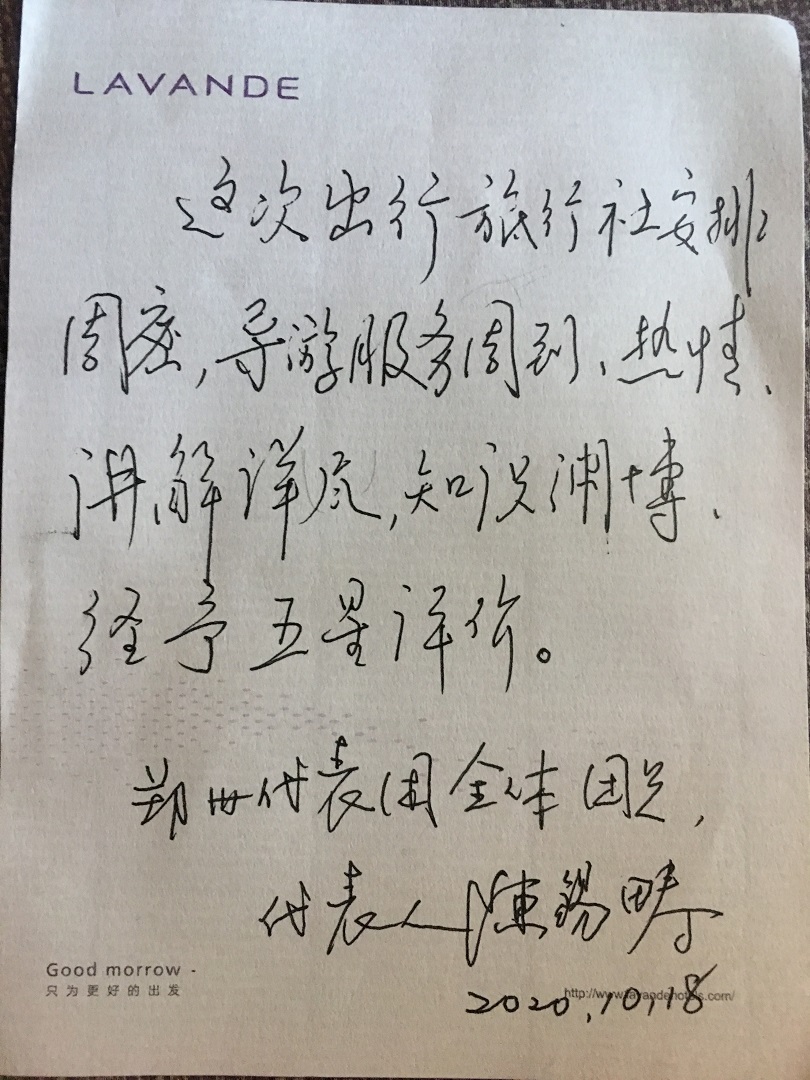 LAVANDE
这次出行旅行社安排
周座,导游服务周到、热情、
讲解详尽,知识渊博、
给予五星评价。
郑州代表团全体团员,
代表人陳錫畴
2020,10,18
Good morrow -
只为更好的出发
http://www.lavandehotels.com/